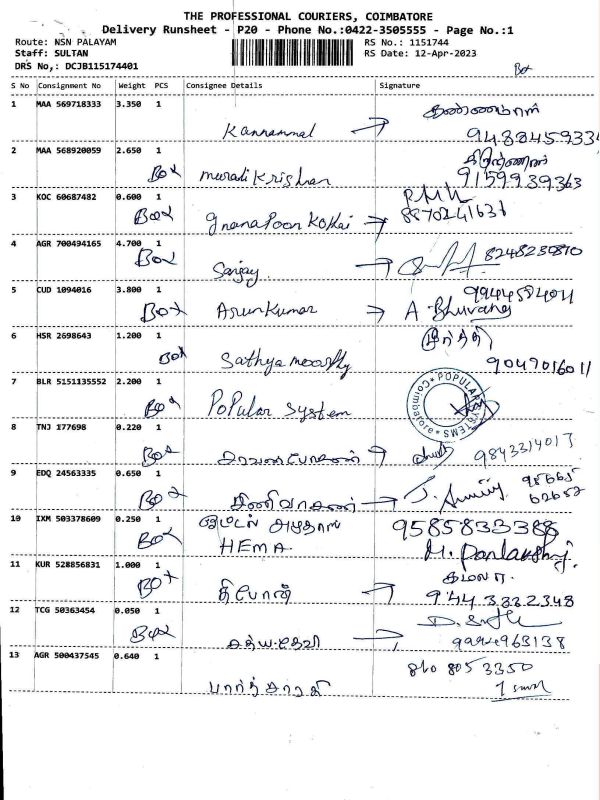 THE PROFESSIONAL COURIERS, COIMBATORE
Delivery Runsheet - P20 - Phone No.:0422-3505555 - Page No.:1
Route: NSN PALAYAM RS No.: 1151744
Staff: SULTAN RS Date: 12-Apr-2023
DRS No,: DCJB115174401
Box
S No Consignment No Weight PCS Consignee Details Signature
1 MAA 569718333 3.350 1
Kannammal
2 MAA 568920059 2.650 1
Box Murali Krishnan 9159939363
3 KOC 60687482 0.600 1
Box GnanaPoonKothai
4 AGR 700494165 4.700 1 8248230810
Box Sanjay
5 CUD 1094016 3.800 1
Box Arunkumar A. Bhuvana
6 HSR 2698643 1.200 1 மூர்த்தி
Box Sathyamoorthy 9047016011
7 BLR 5151135552 2.200 1
Box Popular System
POPULAR SYSTEMS Coimbatore
8 TNJ 177698 0.220 1
Box 9843314017
9 EDQ 24563335 0.650 1
Box சீனிவாசன்
10 IXM 503378609 0.250 1 9585833388
Box HEMA
11 KUR 528856831 1.000 1 கமலா
Box 9443332348
12 TCG 50363454 0.050 1
Box சத்யதேவி 9994963138
13 AGR 500437545 0.640 1 810 805 3350
பார்த்சாரதி